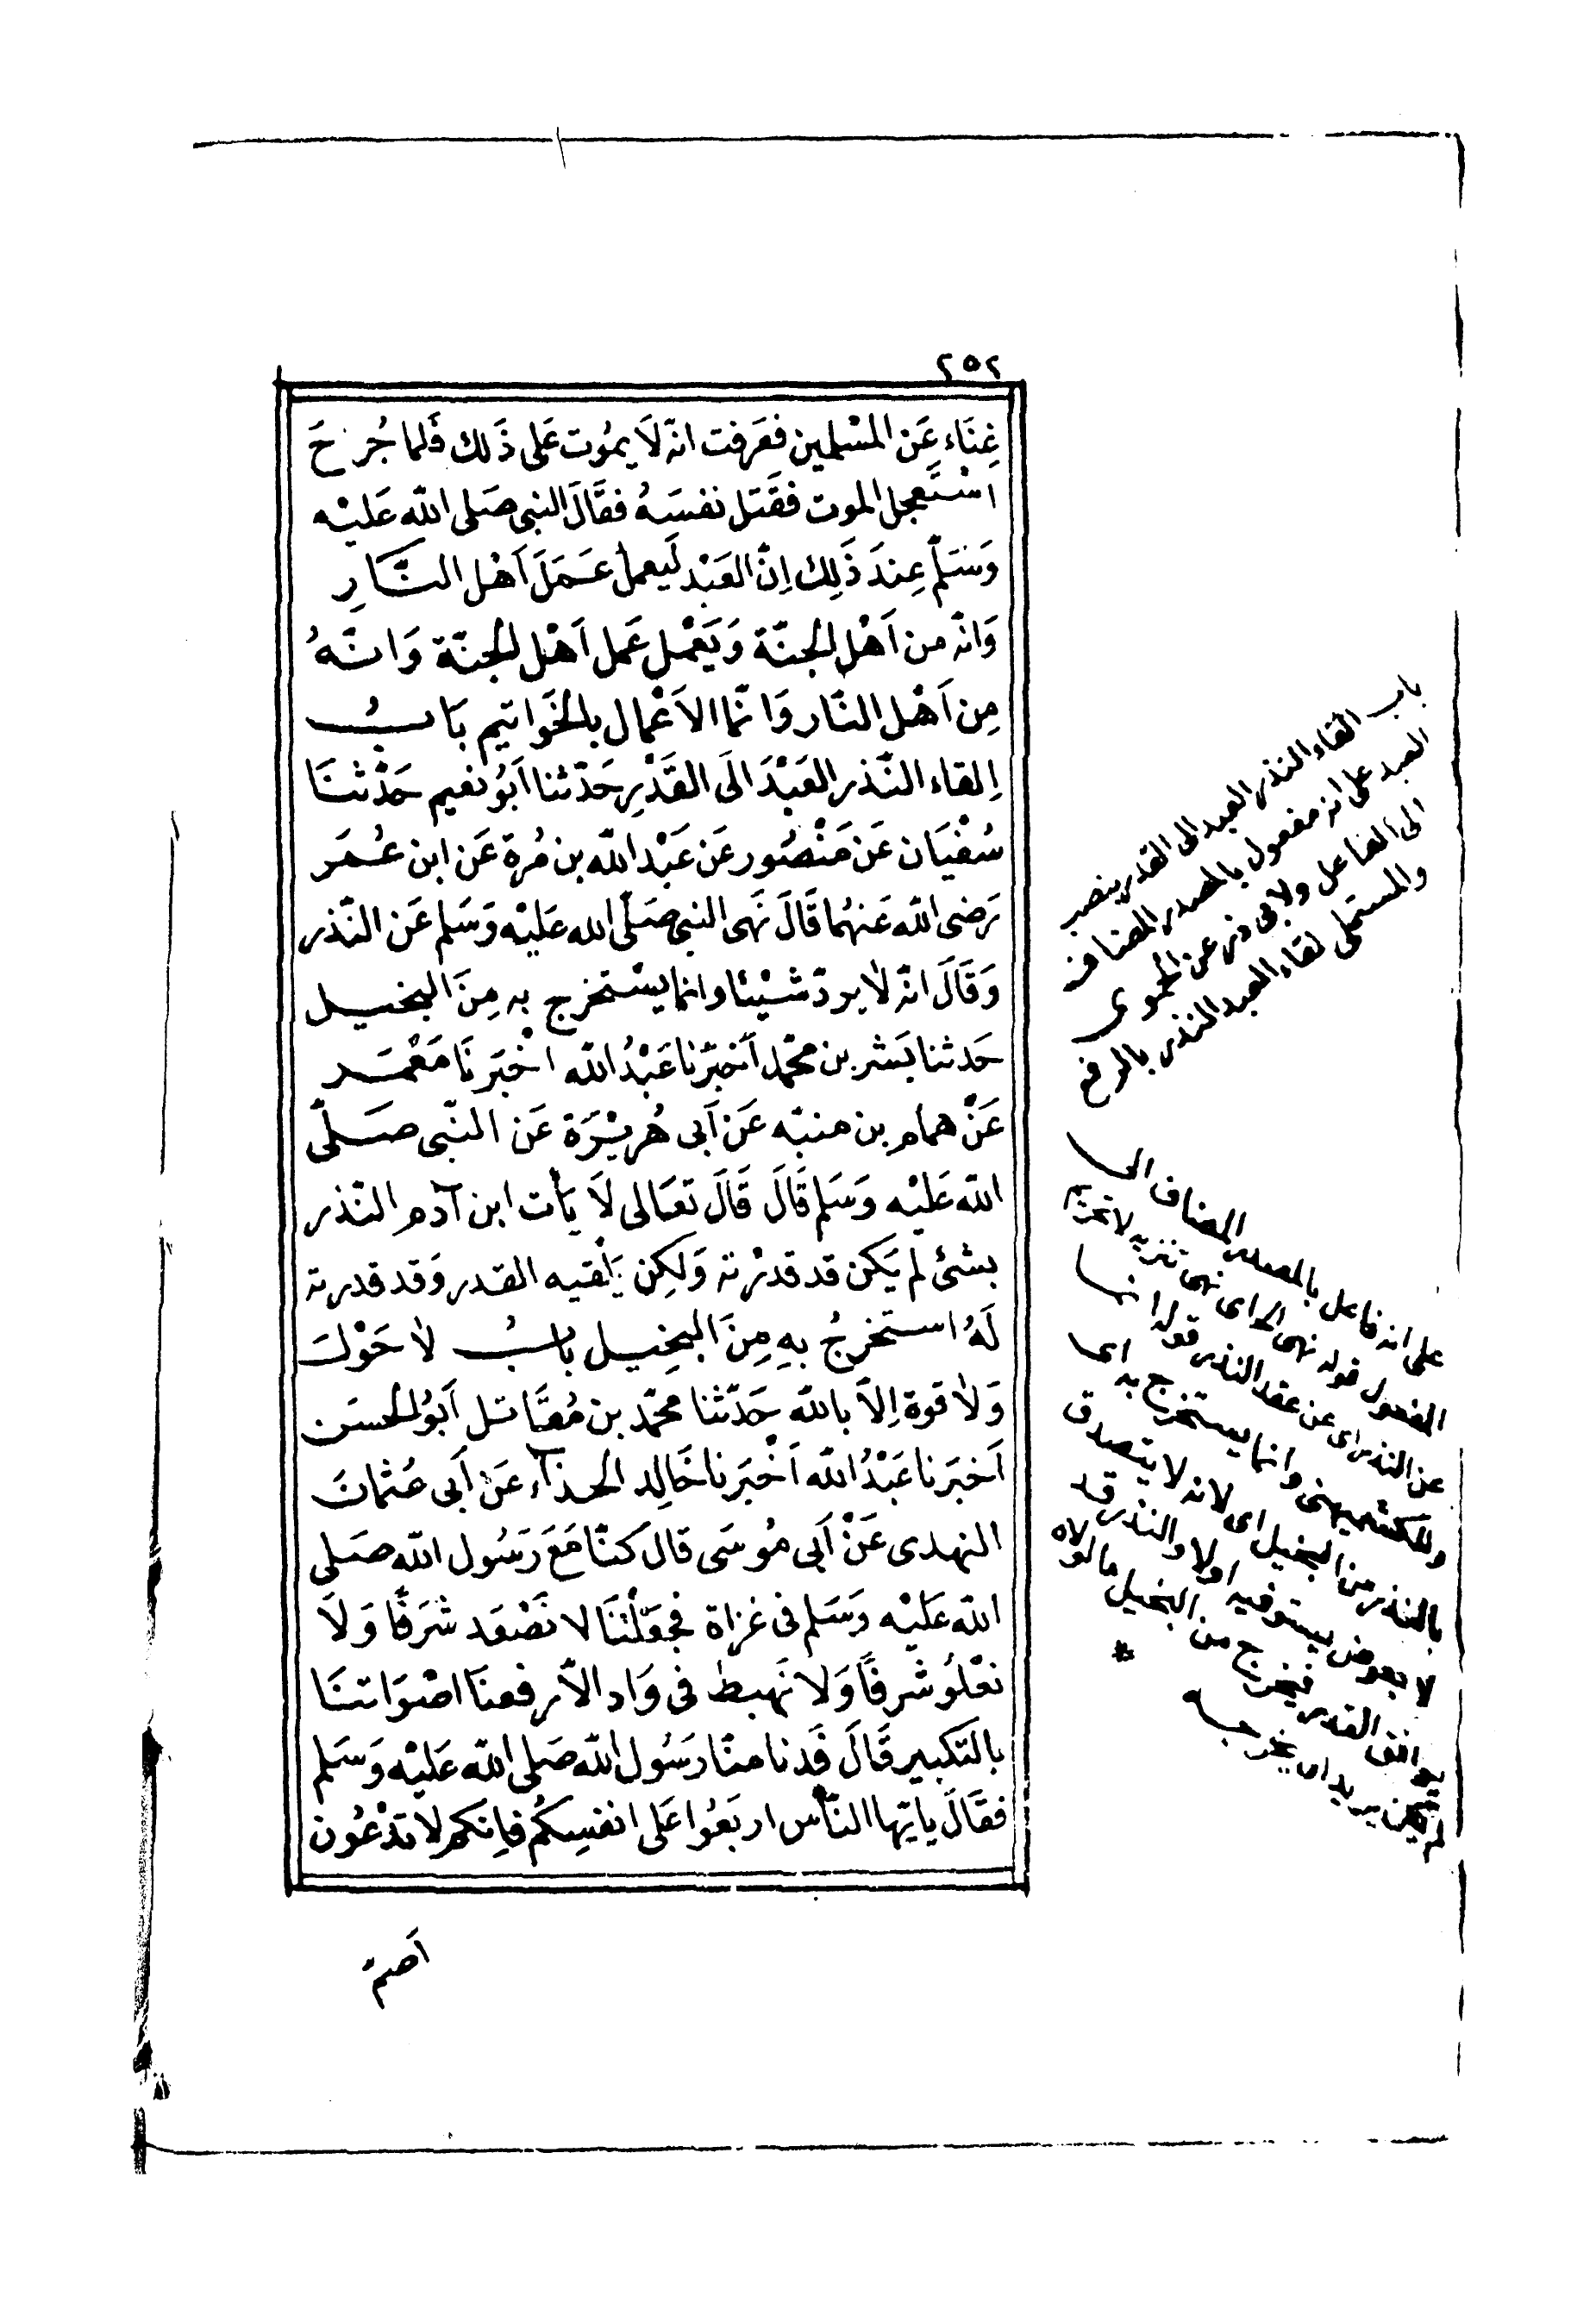 ٢٥٢
غِنَاء عَن المسْلمين فعَرفت انّه لَا يمُوت عَلى ذَلك فَلما جُرحَ
اسْتَعجل الموت فقَتل نفسَهُ فقَالَ النبى صَلى الله عَليْه
وَسَلّم عِندَ ذَلِك اِنّ العَبْد لَيعمل عَمَلَ اَهْل النَّارِ
وَانّه من اَهْل الجنّة وَيَعْمل عَمل اَهْل الجنّة وَانّهُ
مِن اَهْل النّار وَانّما الاَعْمال بالخَواتيم بَابُ
اِلقاء النّذر العَبْدَ الَى القَدْرِ حَدّثنا اَبُو نعيم حَدّثنَا
سُفْيَان عَن مَنْصُور عَن عَبْد الله بن مُرة عَن ابن عُمَر
رَضى الله عَنهُما قَالَ نَهى النبى صَلّى الله عَليْه وَسَلم عَن النّذر
وَقَالَ انّه لا يردّ شيْئا وانما يسْتخرج به مِنَ البخيل
حَدثنا بَشر بن محمّد اَخبرَنا عَبْدُ الله اخْبَرنَا مَعْمَر
عَنْ همام بن منبّه عَن اَبى هُريْرَة عَن النّبى صَلّى
الله عَليْه وَسَلم قَالَ قَالَ تعَالى لَا يَأت ابن آدم النّذر
بشئ لم يَكن قد قدرْته وَلكِن يَلْقيه القدر وَقد قدرته
لَهُ استخرجُ بِهِ مِنَ البخِيل بابُ لا حَوْلَ
وَلا قوة اِلاّ بالله حَدّثنا محمّد بن مُقَاتل اَبوُ الحسَن
اَخبَرنا عَبْدُ الله اَخْبَرنا خَالِد الحذآء عَنْ اَبى عثمانَ
النهدى عَنْ اَبى مُوسَى قالَ كنّا مَعَ رَسُول الله صَلى
الله عَليْه وَسَلم فى غزاة فجعَلْنَا لا نَصْعَد شرَفًا وَلَا
نعْلُو شَرفًا وَلا نَهبط فى وَاد الاّ رفعنَا اصْوَاتنَا
بالتّكبير قَالَ فَدنا منّا رَسُول الله صَلى الله عَليْه وَسَلم
فقَالَ يا ايّها النّاس اربَعُوا عَلى انفسِكُم فاِنكم لا تدْعُون
اَصمّ
باب القاء النذر العبد الى القدر بنصب
العبد على انه مفعول بالمصدر المضاف
الى الفاعل ولابى ذر عن الحموى
والمستملى لقاء العبد النذر بالرفع
على انه فاعل بالمصدر المضاف الى
المفعول قوله نهى الخ اى نهى تنزيه لا تحريم
عن النذر اى عن عقد النذر قوله انما
وللكشميهنى وانما يستخرج به اى
بالنذر من البخيل اى لانه لا يتصدق
لا بعوض يستوفيه اولا والنذر قد
يوافق القدر فيخرج من البخيل ما لولاه
لم يكن يريد ان يخرجه